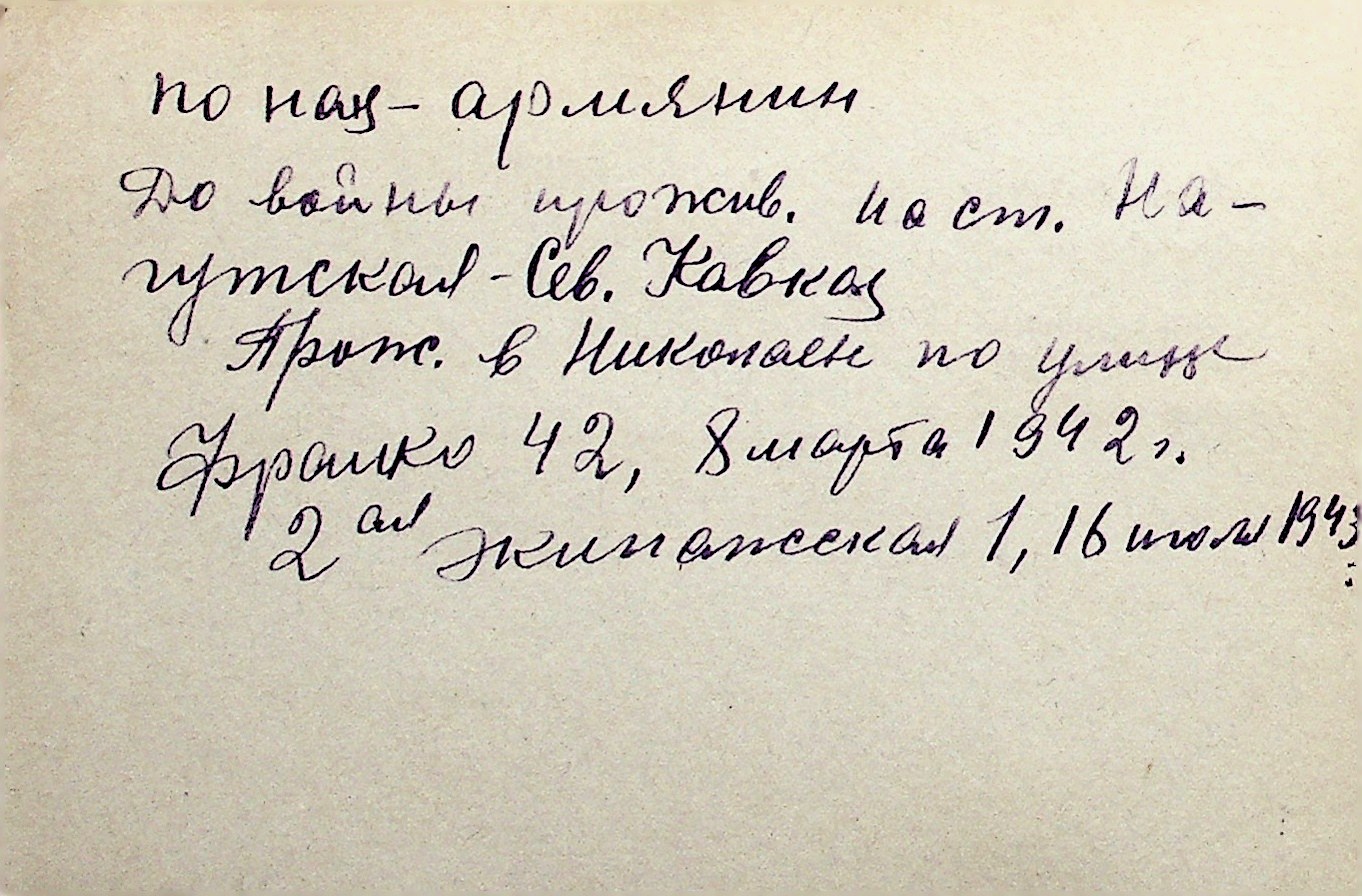 по нац – армянин
До войны прожив. на ст. На-
гутская – Сев. Кавказ
Прож. в Николаеве по улице
Франко 42, 8 марта 1942 г.
2ая Экипажеская 1, 16 июля 1943